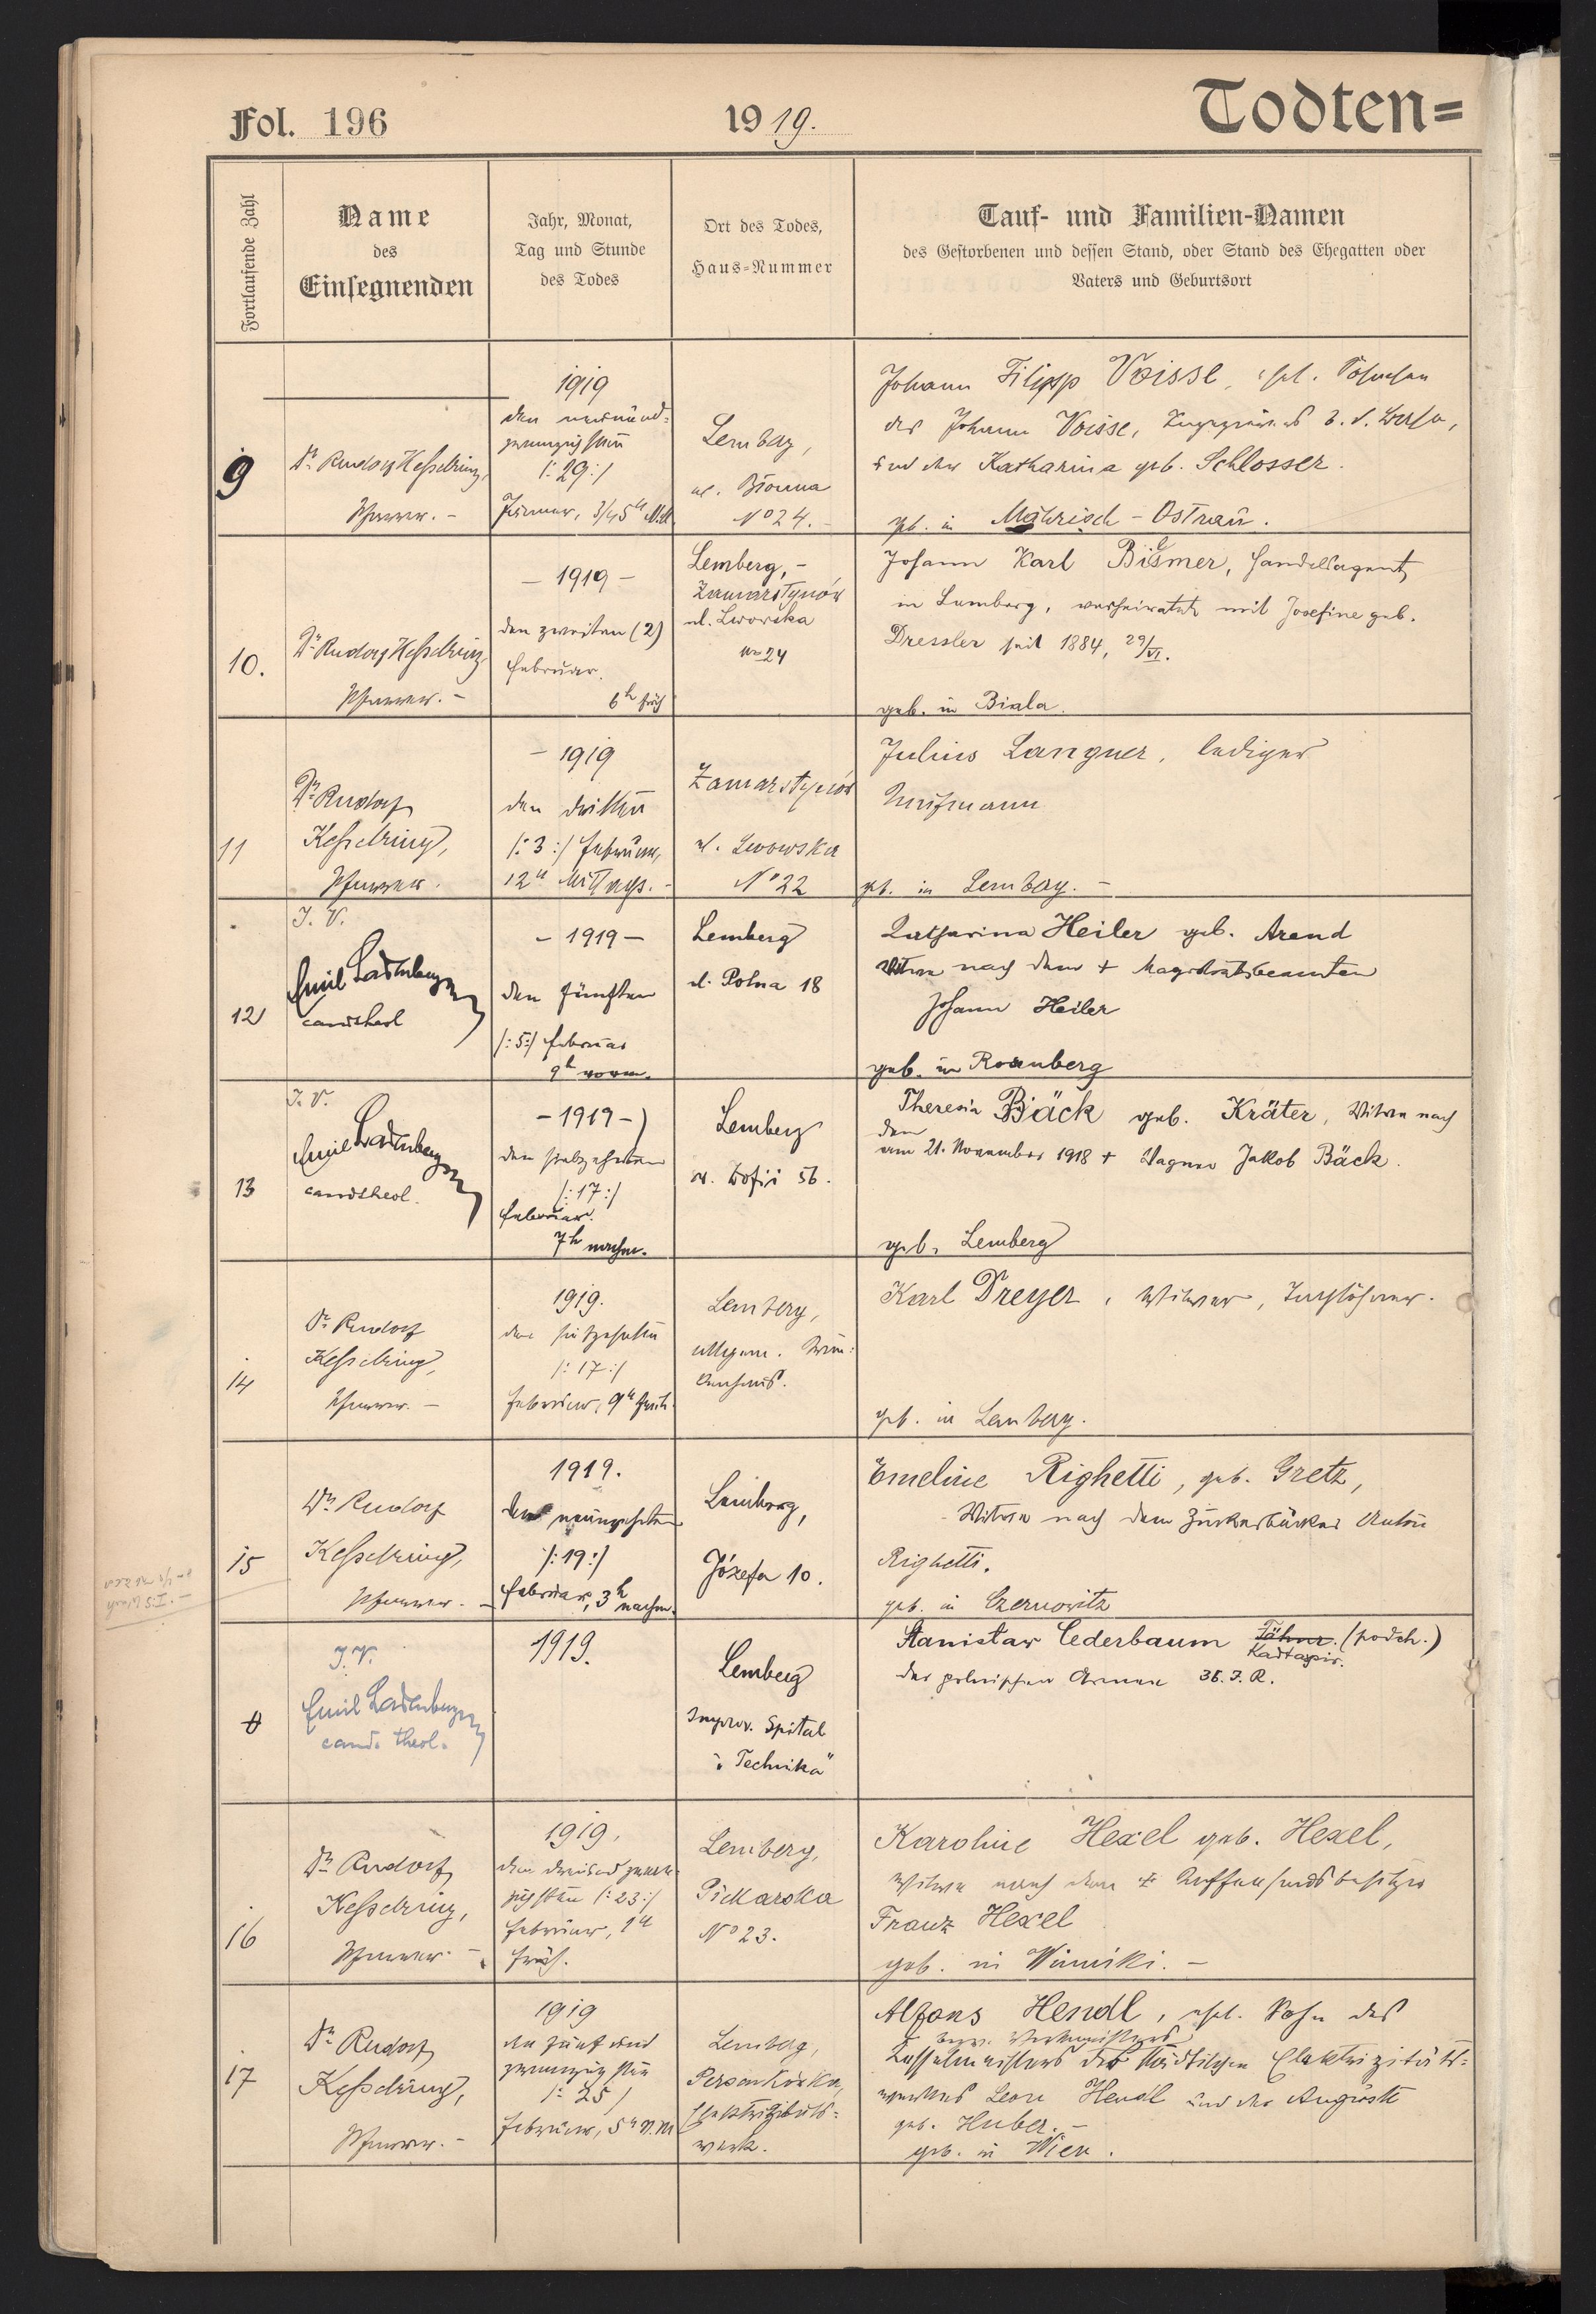 Fol. 196
1919.
Todten=
Fortlaufende Zahl
Name
des
Einsegnenden
Jahr, Monat,
Tag und Stunde
des Todes
Ort des Todes,
Haus-Nummer
Tauf- und Familien-Namen
des Gestorbenen und dessen Stand, oder Stand des Ehegatten oder
Vaters und Geburtsort
9
Dr. Rudolf Kesselring,
Pfarrer. -
1919
den neunund-
zwanzigsten
/:29:/
Jänner, 3/4 5h
Lemberg,
ul.
No 24. -
Johann Filipp Voisse, ehel. Söhnchen
des Johann Voisse,
und der Katharina geb. Schlosser.
geb. in Mährisch-Ostrau.
10.
Dr. Rudolf Kesselring,
Pfarrer. -
- 1919 -
den zweiten (2)
Februar.
6h früh
Lemberg, -
Zamarstynów
ul. Lwowska
No 24
Johann Karl Handelsagent
in Lemberg, verheiratet mit Josefine geb.
Dressler seit 1884, 29/VI.
geb. in Biala.
11
Dr. Rudolf
Kesselring,
Pfarrer.
- 1919
den dritten
/:3:/ Februar,
12h Mittags. -
Zamarstynów
ul. Lwowska
No 22
Julius Langner, lediger
geb. in Lemberg. -
12
I. V.
Emil Ladenberger
cand theol
- 1919 -
den fünften
/:5:/ Februar
9h vorm.
Lemberg
ul. Polna 18
Katharina Heiler geb. Arend
Witwe nach dem + Magistratsbeamten
Johann Heiler
geb. in Rosenberg
13
I. V.
Emil Ladenberger
cand theol.
- 1919 -
den siebzehnten
/:17:/
Februar.
7h nachm.
Lemberg
56.
Theresia Bäck geb. Kräter, Witwe nach
dem
am 21. November 1918 + Wagner Jakob Bäck.
geb. Lemberg
14
Dr. Rudolf
Kesselring,
Pfarrer. -
1919.
den siebzehnten
/:17:/
Februar, 9h früh.
Lemberg,
allgem.
Karl Dreyer, Witwer, Taglöhner.
geb. in Lemberg.
15
Dr. Rudolf
Kesselring,
Pfarrer. -
1919.
den neunzehnten
/:19:/
Februar, 3h
nachm.
Lemberg,
Józefa 10.
Emeline Righetti, geb. Gretz,
Witwe nach dem Zuckerbäcker Anton
Righetti.
geb. in Czernowitz
I. V.
Emil Ladenberger
cand. theol.
1919.
Lemberg
Improv. Spital
"Technika"
Stanislaw Cederbaum Fähnr. (podch.)
Kadtaspir.
der polnischen Armee 36. J. R.
16
Dr. Rudolf
Kesselring,
Pfarrer -
1919.
den dreiundzwan-
zigsten /:23:/
Februar, 1h
früh.
Lemberg,
Piekarska
No 23.
Karoline Hexel geb. Hexel,
Witwe nach dem + Kaffeehausbesitzer
Franz Hexel
geb. in Winniki. -
17
Dr. Rudolf
Kesselring,
Pfarrer. -
1919
den fünf und
zwanzigsten
/:25/
Februar, 5h n.m
Lemberg,
Persenkówka,
Elektrizitäts-
werk.
Alfons Hendl, ehel. Sohn des
bezw. Werkmeisters
Kesselmeisters des städtischen Elektrizitäts-
werkes Leon Hendl und der Auguste
geb. Huber. -
geb. in Wien.